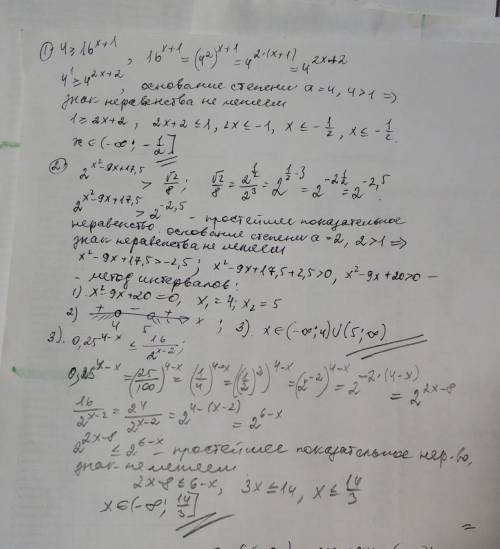 ① 4 ≥ 16^{x+1}, 16^{x+1} = (4²)^{x+1} = 4^{2·(x+1)} = 4^{2x+2}
4¹ ≥ 4^{2x+2}, основание степени a = 4, 4 > 1 ⇒
знак неравенства не меняем
1 ≥ 2x+2, 2x+2 ≤ 1, 2x ≤ -1, x ≤ -1/2, x ≤ -1/2.
x ∈ (-∞; -1/2]
② 2^{x²-9x+17,5} > √2/8; √2/8 = 2^{1/2}/2³ = 2^{1/2-3} = 2^{-2 1/2} = 2^{-2,5}.
2^{x²-9x+17,5} > 2^{-2,5} - простейшее показательное
неравенство. основание степени a = 2, 2 > 1 ⇒
знак неравенства не меняем
x²-9x+17,5 > -2,5; x²-9x+17,5+2,5 > 0, x²-9x+20 > 0 -
- метод интервалов:
1) x²-9x+20 = 0, x₁ = 4; x₂ = 5
2) + - + 4 5 x; 3). x ∈ (-∞; 4) ∪ (5; ∞)
3). 0,25^{4-x} ≤ 16/2^{x-2};
0,25^{4-x} = (25/100)^{4-x} = (1/4)^{4-x} = ((1/2)²)^{4-x} = (2^{-2})^{4-x} = 2^{-2·(4-x)} = 2^{2x-8}
16/2^{x-2} = 2⁴/2^{x-2} = 2^{4-(x-2)} = 2^{6-x}
2^{2x-8} ≤ 2^{6-x} - простейшее показательное нер-во,
знак не меняем
2x-8 ≤ 6-x, 3x ≤ 14, x ≤ 14/3
x ∈ (-∞; 14/3]
=